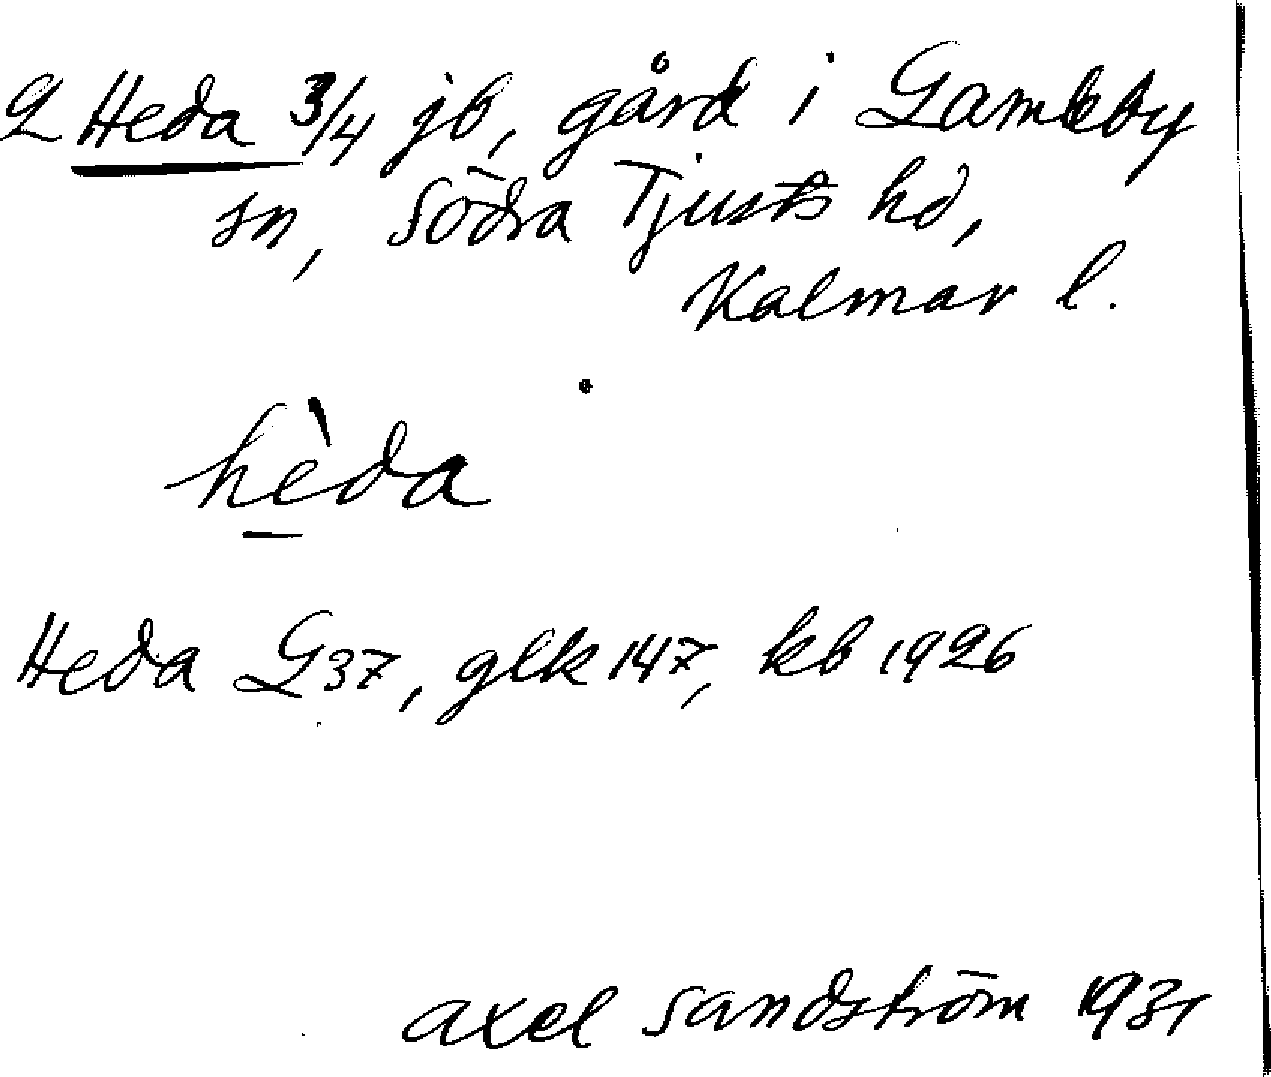 2 Heda 3/4 jb, gård i Gamleby
sn, Södra Tjusts hd,
Kalmar l.
hèda
Heda G37, glk 147, kb 1926
Axel Sandström 1931